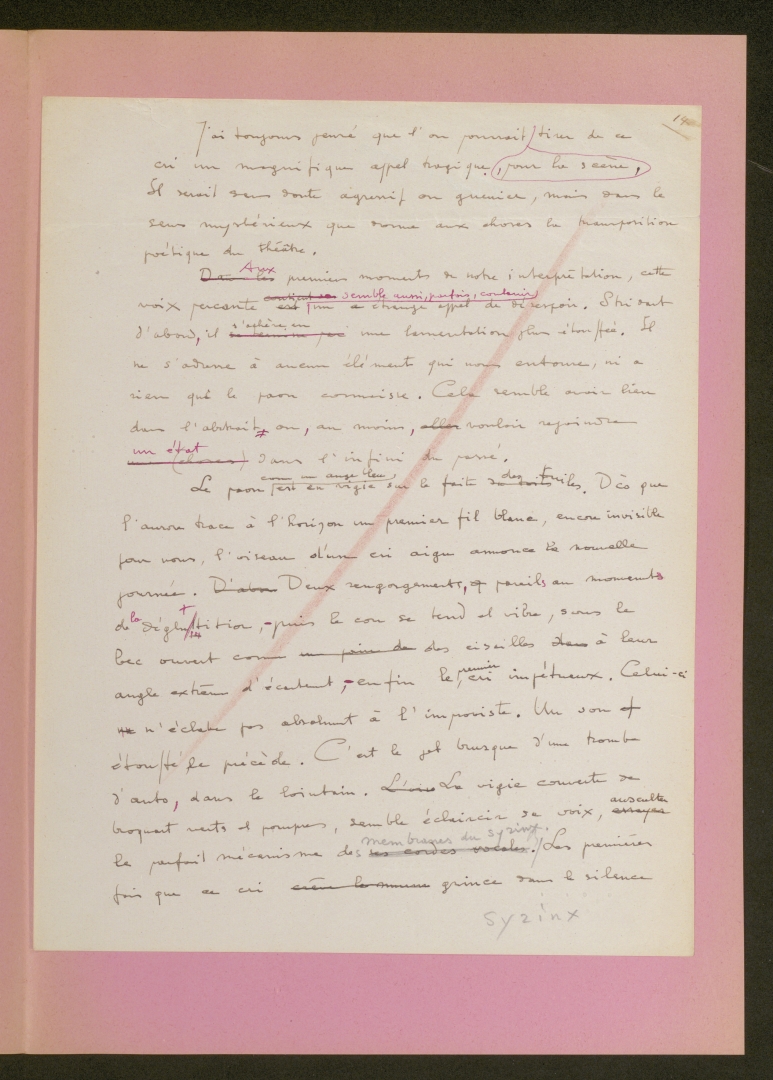 14
J'ai toujours pensé que l'on pourrait tirer de ce
cri un magnifique appel tragique, pour la scène,
Il serait sans doute agressif ou guerrier, mais dans le
sens mystérieux que donne aux choses la transposition
poétique du théâtre.
Aux
Dans les premiers moments de notre interprétation, cette
contient un semble aussi, parfois, contenir
voix perçante est un étrange appel de désespoir. Strident
s'achève en
d'abord, il se termine par une lamentation plus étouffée. Il
ne s'adresse à aucun élément qui nous entoure, ni à
rien que le paon connaisse. Cela semble avoir lieu
dans l'abstrait, ou, au moins, vouloir rejoindre
un état
(choses) dans l'infini du passé.
comme un ange bleu,
des tuiles
Le paon est en vigie sur le faîte. Dès que
l'aurore trace à l'horizon un premier fil blanc, encore invisible
pour nous, l'oiseau d'un cri aigu annonce la nouvelle
journée. D'abord Deux rengorgements, pareils au moment
de la déglutition, - puis le cou se tend et vibre, sous le
bec ouvert comme des ciseilles dans à leur
premier
angle extrême d'écartement, - enfin le cri impétueux. Celui-ci
n'éclate pas absolument à l'improviste. Un son
étouffé le précède. C'est le jet brusque d'une trompe
d'auto, dans le lointain. La vigie couverte de
ausculter
brocart verts et pourpres, semble éclaircir sa voix, essayer
membranes du syrinx.
le parfait mécanisme des ses cordes vocales. Les premières
fois que ce cri crève le murmure grince dans le silence
syrinx